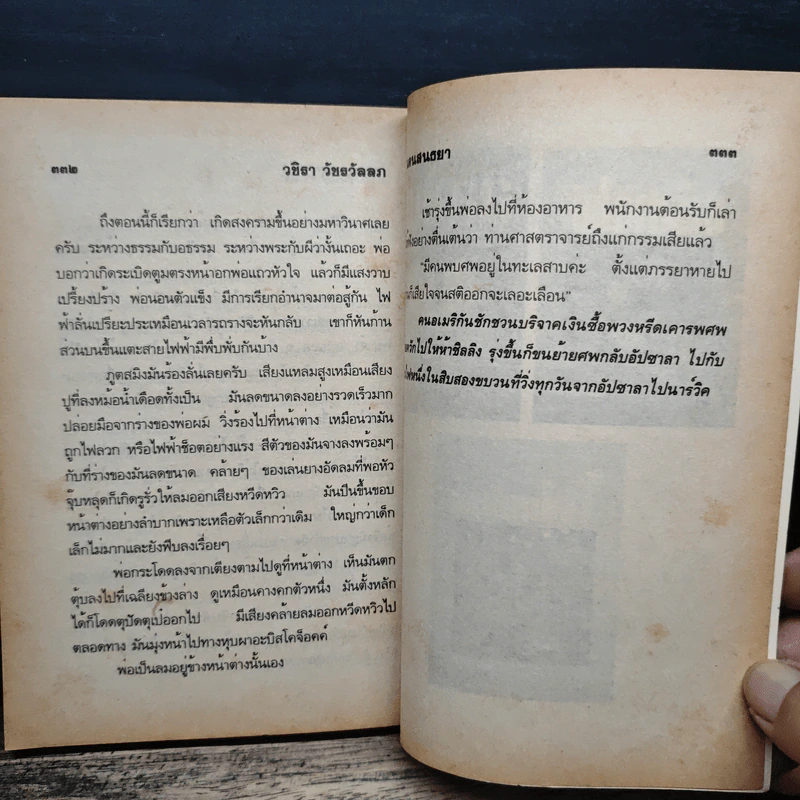 ๓๓๒
วชิรา วัชรวัลลภ
ถึงตอนนี้ก็เรียกว่า เกิดสงครามขึ้นอย่างมหาวินาศเลย
ครับ ระหว่างธรรมกับอธรรม ระหว่างพระกับผีว่างั้นเถอะ พ่อ
บอกว่าเกิดระเบิดตูมตรงหน้าอกพ่อแถวหัวใจ แล้วก็มีแสงวาบ
เปรี้ยงปร้าง พ่อนอนตัวแข็ง มีการเรียกอำนาจมาต่อสู้กัน ไฟ
ฟ้าลั่นเปรียะประเหมือนเวลารถรางจะหันกลับ เขาก็หันก้าน
ส่วนบนขึ้นแตะสายไฟฟ้ามีพึ่บพั่บกันบ้าง
ภูตสมิงมันร้องลั่นเลยครับ เสียงแหลมสูงเหมือนเสียง
ปูที่ลงหม้อน้ำเดือดทั้งเป็น มันลดขนาดลงอย่างรวดเร็วมาก
ปล่อยมือจากร่างของพ่อผม วิ่งร้องไปที่หน้าต่าง เหมือนว่ามัน
ถูกไฟลวก หรือไฟฟ้าช็อตอย่างแรง สีตัวของมันจางลงพร้อมๆ
กับที่ร่างของมันลดขนาด คล้ายๆ ของเล่นยางอัดลมที่พอหัว
จุ๊บหลุดก็เกิดรูรั่วให้ลมออกเสียงหวีดหวิว มันปีนขึ้นขอบ
หน้าต่างอย่างลำบากเพราะเหลือตัวเล็กกว่าเดิม ใหญ่กว่าเด็ก
เล็กไม่มากและยังฟีบลงเรื่อยๆ
พ่อกระโดดลงจากเตียงตามไปดูที่หน้าต่าง เห็นมันตก
ตุ้บลงไปที่เฉลียงข้างล่าง ดูเหมือนคางคกตัวหนึ่ง มันตั้งหลัก
ได้ก็โดดตุปัดตุเป๋ออกไป มีเสียงคล้ายลมออกหวีดหวิวไป
ตลอดทาง มันมุ่งหน้าไปทางหุบผาอะบิสโคจ็อคค์
พ่อเป็นลมอยู่ข้างหน้าต่างนั้นเอง
สนธยา
๓๓๓
เช้ารุ่งขึ้นพ่อลงไปที่ห้องอาหาร พนักงานต้อนรับก็เล่า
อย่างตื่นเต้นว่า ท่านศาสตราจารย์ถึงแก่กรรมเสียแล้ว
"มีคนพบศพอยู่ในทะเลสาบค่ะ ตั้งแต่ภรรยาหายไป
ก็เสียใจจนสติออกจะเลอะเลือน"
คนอเมริกันชักชวนบริจาคเงินซื้อพวงหรีดเคารพศพ
ไปให้ห้าชิลลิง รุ่งขึ้นก็ขนย้ายศพกลับอัปซาลา ไปกับ
หนึ่งในสิบสองขบวนที่วิ่งทุกวันจากอัปซาลาไปนาร์วิค